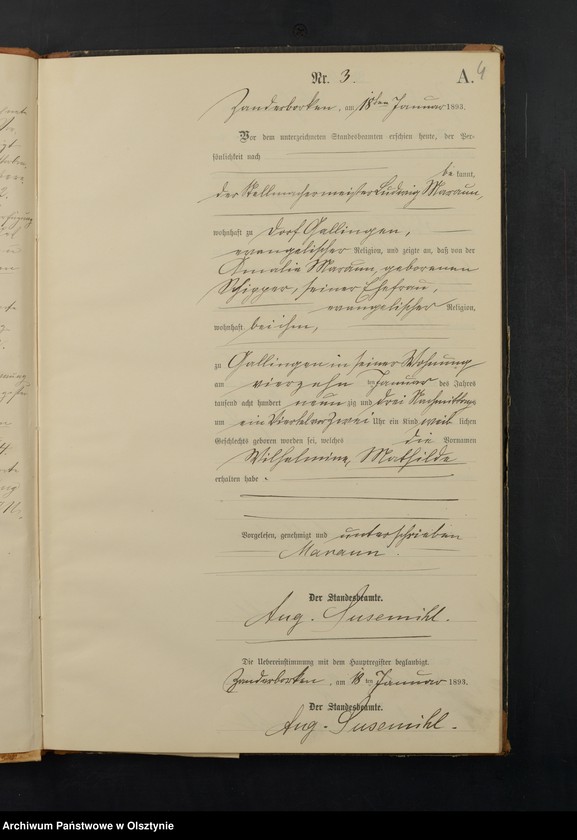 Nr. 3.
A. 4
Zanderborken, am 18ten Januar 1893.
Vor dem unterzeichneten Standesbeamten erschien heute, der Per-
sönlichkeit nach
be kannt,
der Stellmachermeister Ludwig Maraun,
wohnhaft zu Dorf Gallingen,
evangelischer Religion, und zeigte an, daß von der
Amalie Maraun, geborenen
Schipper, seiner Ehefrau,
evangelischer Religion,
wohnhaft bei ihm,
zu Gallingen in seiner Wohnung
am vierzehn ten Januar des Jahres
tausend acht hundert neun zig und drei Nachmittags
um ein Viertel vor zwei Uhr ein Kind weib lichen
Geschlechts geboren worden sei, welches die Vornamen
Wilhelmine, Mathilde
erhalten habe.
Vorgelesen, genehmigt und unterschrieben
Maraun.
Der Standesbeamte.
Aug. Susemihl.
Die Uebereinstimmung mit dem Hauptregister beglaubigt.
Zanderborken, am 18 ten Januar 1893.
Der Standesbeamte.
Aug. Susemihl.
Archiwum Państwowe w Olsztynie